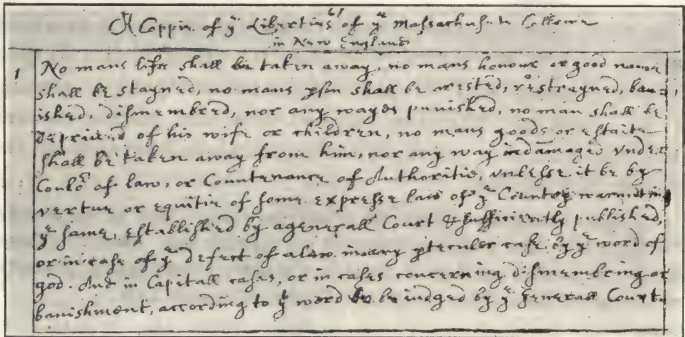 A Coppie of yͤ Liberties of yͤ Massachusets Collonie
in New England
1 No mans life shall be taken away, no mans honour or good name
shall be stayned, no mans pson shall be arested, restrayned, ban
ished, dismembred, nor any wayes punished, no man shall be
deprived of his wife or children, no mans goods or estaite
shall be taken away from him, nor any way indamaged under
Coulor of law, or Countenance of Authoritie, unlesse it be by
vertue or equitie of some expresse law of yͤ Country
yͤ same, established by a generall Court & sufficiently published,
or in case of yͤ defect of a law in any pteculer case by yͤ word of
god. And in Capitall cases, or in cases concerning dismembring or
banishment, according to yͭ word to be iudged by yͤ Generall Court